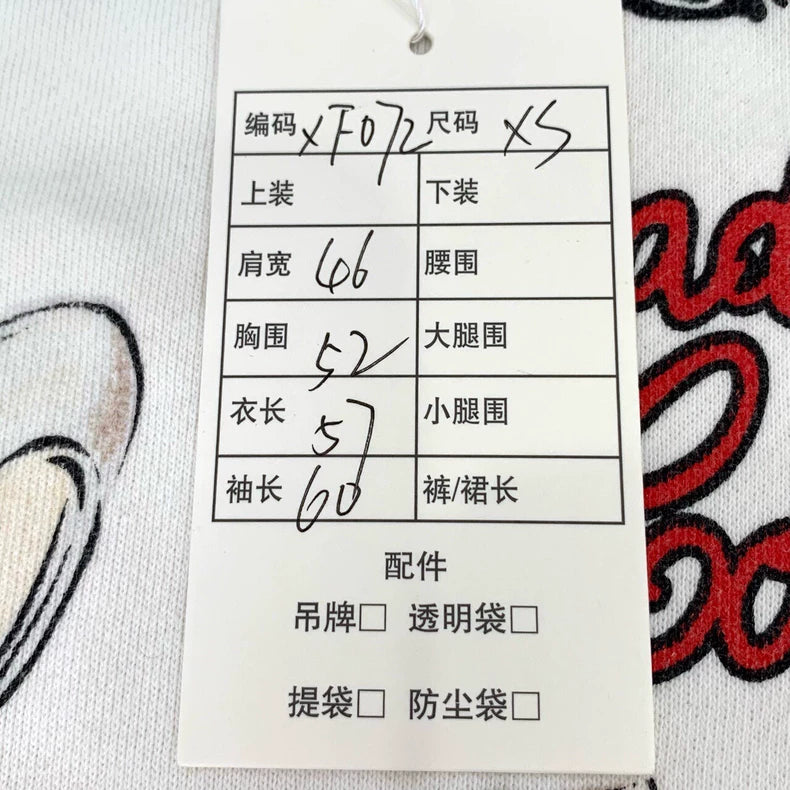 编码 XF072 尺码 XS
上装 下装
肩宽 46 腰围
胸围 52 大腿围
衣长 57 小腿围
袖长 60 裤/裙长
配件
吊牌□ 透明袋□
提袋□ 防尘袋□